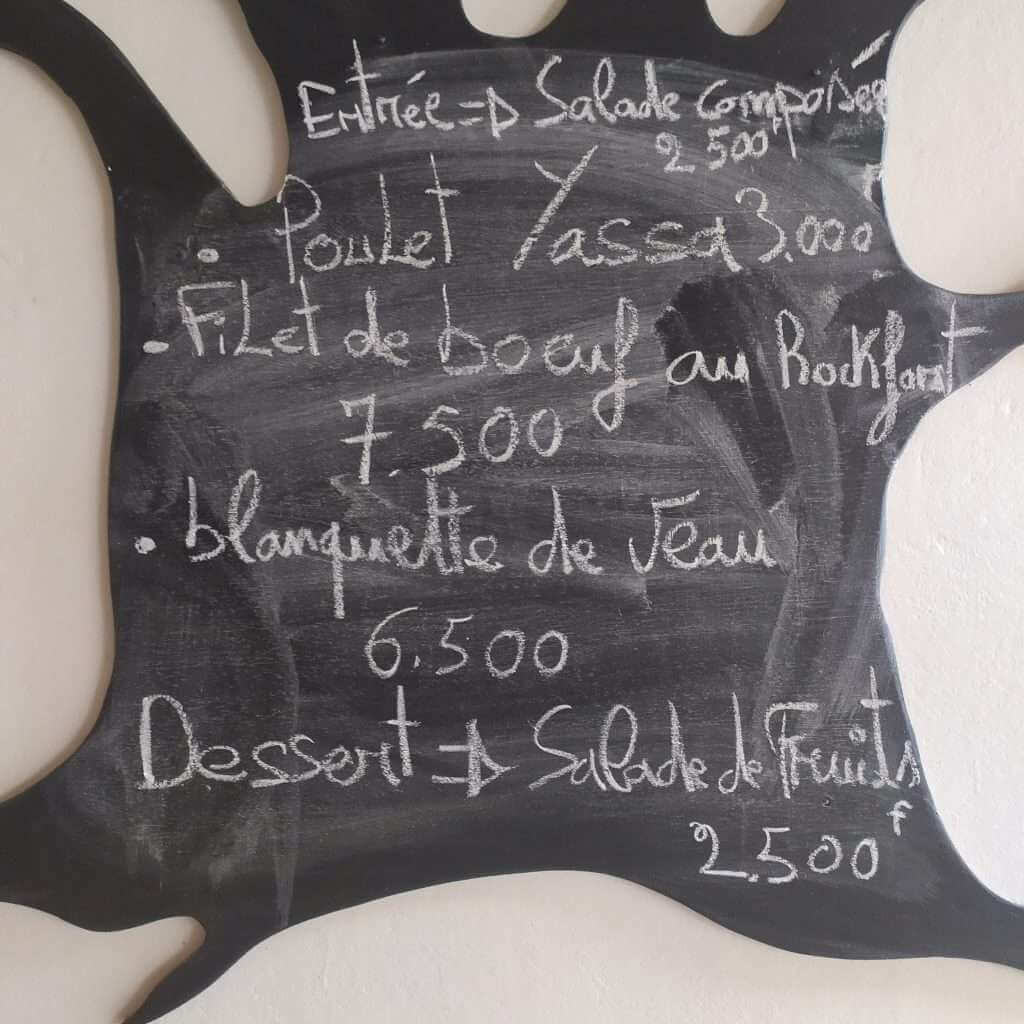 Entrée => Salade composée
2 500F
• Poulet Yassa 3.000
• Filet de boeuf au Rockfort
7.500
• blanquette de Veau
6.500
Dessert => Salade de Fruits
2.500 f